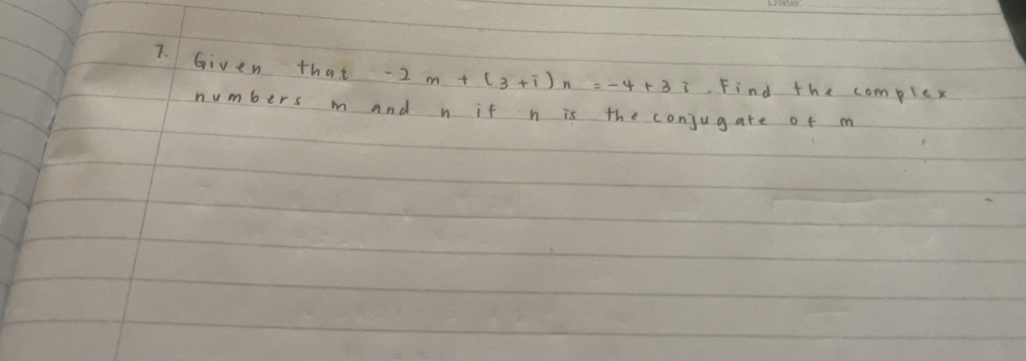 Date:
7. Given that -2m + (3+i)n = -4+3i. Find the complex
numbers m and n if n is the conjugate of m